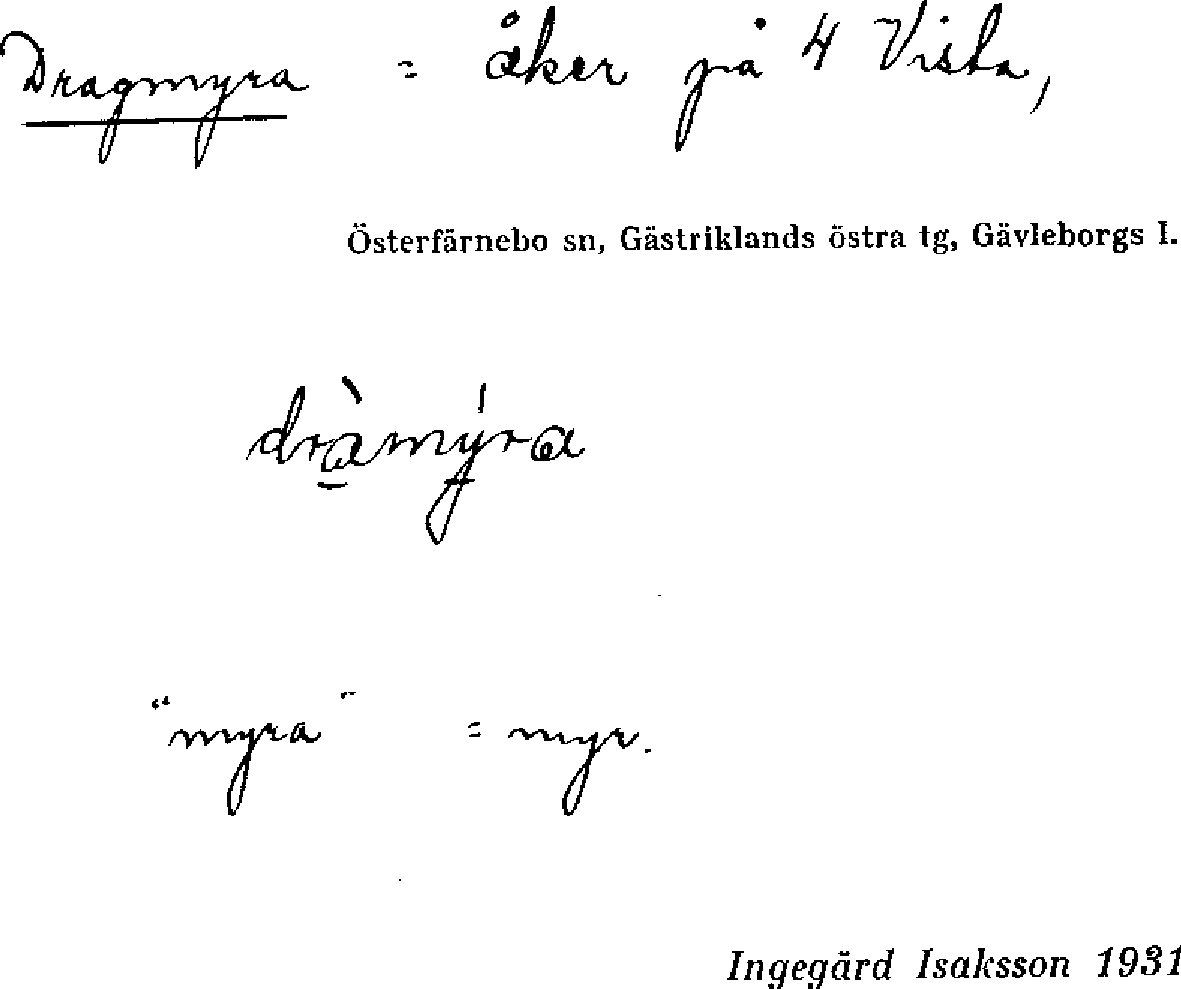 Dragmyra = åker på 4 Vista,
Österfärnebo sn, Gästriklands östra tg, Gävleborgs l.
drà̱mýra
"myra" = myr.
Ingegärd Isaksson 1931